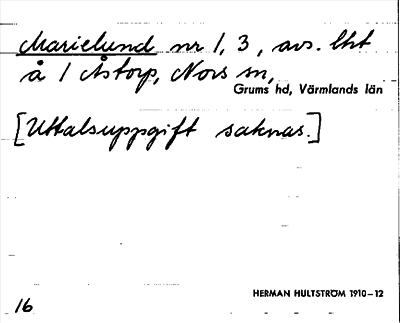 Marielund nr 1, 3, avs. lht
å 1 Åstorp, Nors sn,
Grums hd, Värmlands län
[Uttalsuppgift saknas.]
HERMAN HULTSTRÖM 1910–12
16